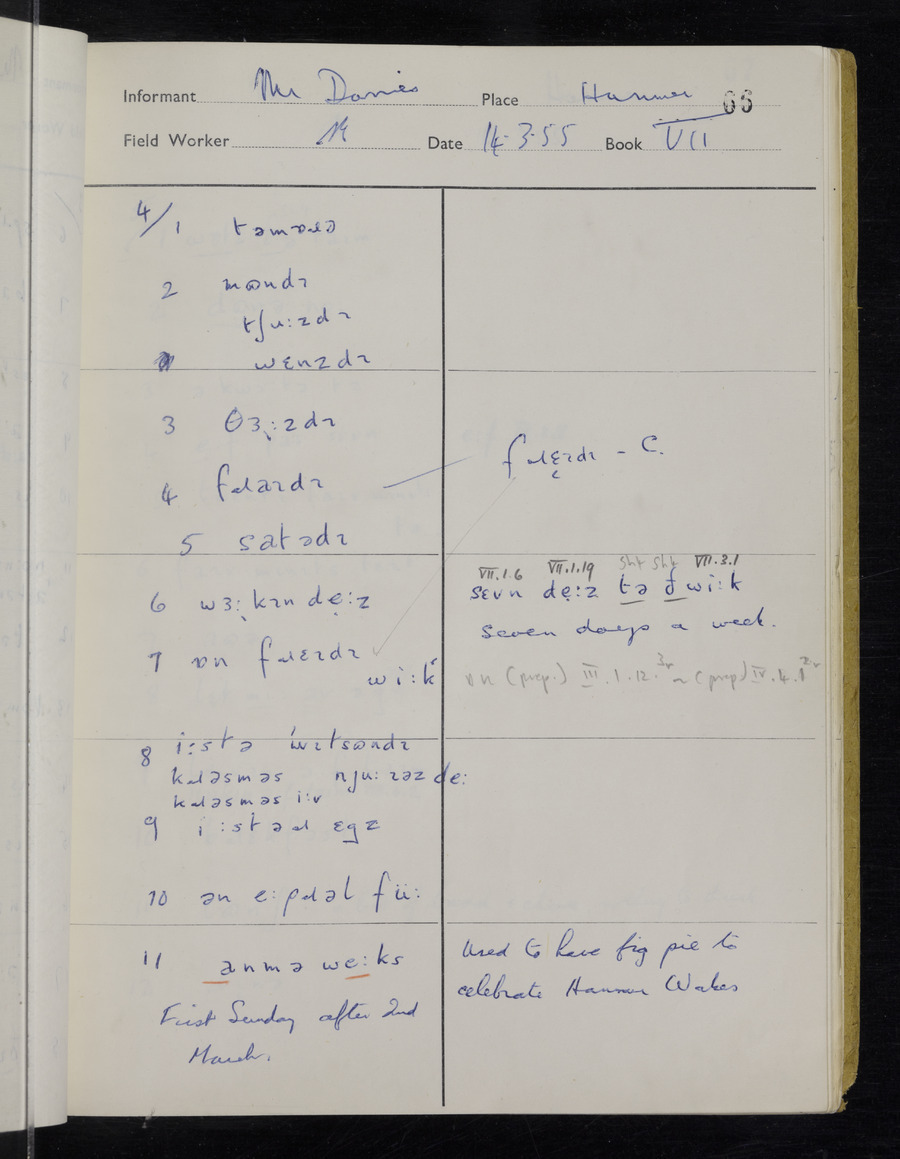 Informant Mr Davies Place Hanmer 66
Field Worker Date 14.3.55 Book VII
4/1 təmɒɹə
2 mɷndɪ
tʃu:zdɪ
wɛnzdɪ
3 θɜ˞:zdɪ
4 fɹaɪdɪ
fɹɛɪdɪ - C.
5 satədɪ
6 wɜ˞:kɪn dẹ:z
7 ɒn fɹɛɪdɪ
wi:k
VII.1.6 VII.1.19 VII.3.1
sɛvn dẹ:z tə ð wi:k
seven days a week.
ɒn (prep.) III.1.12. ~ (prep) IV.4.1
8 i:stə wɪtsɷndɪ
kɹɪsməs nju: ɪəz de:
kɹɪsməs i:v
9 i:stəɹ ɛgz
10 ən e:pɹəl fü:
11 anmə we:ks
First Sunday after 2nd
March.
Used to have fig pie to
celebrate Hanmer Wakes